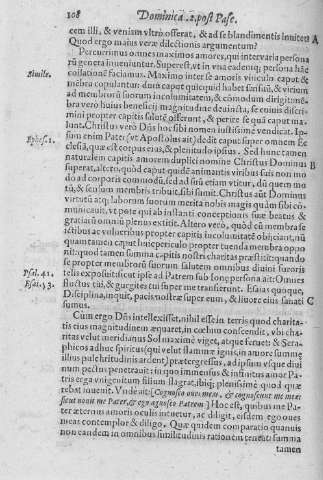 108 Dominica .2. post Pasc.
cem illi, & veniam vltrò offerat, & ad se blandimentis inuitet A
Quod ergo maius veræ dilectionis argumentum?
Percurrimus omnes maximos amores, qui inter varia persona
rū genera inueniuntur. Superest, vt in vna eademq; persona hāc
Simile. collationē faciamus. Maximo inter se amoris vinculo caput &
mēbra copulantur: dum caput quicquid habet sensuū, & virium
ad membrorū suorum incolumitatem, & cōmodum dirigit: mē-
bra verò huius beneficij magnitudine deuincta, se cuiuis discri-
mini propter capitis salutē offerunt, & perire se quā caput ma-
lunt. Christus verò Dn̄s hoc sibi nomen iustissimè vendicat. Ip-
Ephes. 1. sum enim Pater (vt Apostolus ait) dedit caput super omnem Ec
clesiā, quæ est corpus eius, & plenitudo ipsius. Sed hunc tamen
naturalem capitis amorem duplici nomine Christus Dominus B
superat, alterū quòd caput quidē animantis viribus suis non mo
dò ad corporis commodū, sed ad suū etiam vtitur, diu quem mo
tū, & sensum membris tribuit, sibi sumit. Christus aūt Dominus
virtutū atq; laborum suorum merita nobis magis quàm sibi cō-
municauit, vt pote qui ab instanti conceptionis suæ beatus &
gratiæ omniū plenus extitit. Altero verò, quòd cū membra se
ictibus ac vulneribus propter capitis incolumitatē obijciant, nū
quam tamen caput huic periculo propter tuenda membra oppo
nit: quod tamen summa capitis nostri charitas præstitit: quando
se propter membrorū suorum salutem omnibus diuini furoris
Psal. 41. telis exposuit: sicut ipse ad Patrem sub hoc persona ait: Omnes
Esai. 53. fluctus tui, & gurgites tui super me transierunt. Esaias quoque,
Disciplina, inquit, pacis nostræ super eum, & liuore eius sanati C
sumus.
Cum ergo Dn̄s intellexisset, nihil esse in terris quod charita-
tis eius magnitudinem æquaret, in cœlum conscendit, vbi cha-
ritas velut meridianus Sol maximè viget, atque feruet: & Sera-
phicos adhuc spiritus (qui velut flammæ ignis, in amore summæ
illius pulchritudinis ardent) prætergressus, ad ipsum vsque diui
num pectus penetrauit: in quo immensus & infinitus amor Pa-
tris erga vnigenitum filium flagrat, ibiq; plenissimè quod quæ
rebat inuenit. Vnde ait: [Cognosco oues meas, & cognoscunt me meæ
sicut nouit me Pater, & ego agnosco Patrem] Hoc est, quibus me Pa-
ter æternus amoris oculis intuetur, ac diligit, eisdem ego oues
meas contemplor & diligo. Quæ quidem comparatio quamuis
non eandem in omnibus similitudinis rationem teneat: summa
tamen